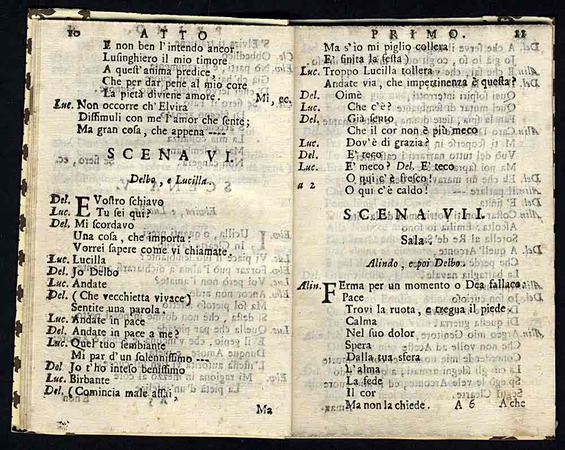 10 ATTO
E non ben l'intendo ancor.
Lusinghiero il mio timore
A quest'anima predice,
Che per dar pene al mio core
La pietà diviene amore. Mi, ec.
Luc. Non occorre ch'Elvira
Dissimuli con me l'amor che sente;
Ma gran cosa, che appena ----
SCENA VI.
Delbo, e Lucilla.
Del. E Vostro schiavo
Luc. E Tu sei qui?
Del. Mi scordavo
Una cosa, che importa:
Vorrei sapere come vi chiamate.
Luc. Lucilla
Del. Jo Delbo
Luc. Andate
Del. (Che vecchietta vivace)
Sentite una parola.
Luc. Andate in pace
Del. Andate in pace a me?
Luc. Quel tuo sembiante
Mi par d'un solennissimo ---
Del. Jo t'ho inteso benissimo
Luc. Birbante
Del. (Comincia male assai,
Ma
PRIMO. 11
Ma s'io mi piglio collera
E' finita la festa)
Luc. Troppo Lucilla tollera
Andate via, che impertinenza è questa?
Del. Oimè
Luc. Che c'è?
Del. Già sento
Che il cor non è più meco
Luc. Dov'è di grazia?
Del. E' teco
Luc. E' meco? Del. E' teco
a 2 O qui c'è fresco!
O qui c'è caldo!
SCENA VII.
Sala.
Alindo, e poi Delbo.
Alin. FErma per un momento o Dea fallace:
Pace
Trovi la ruota, e tregua il piede:
Calma
Nel suo dolor
Spera
Dalla tua sfera
L'alma
La fede
Il cor
Ma non la chiede. A 6 A che